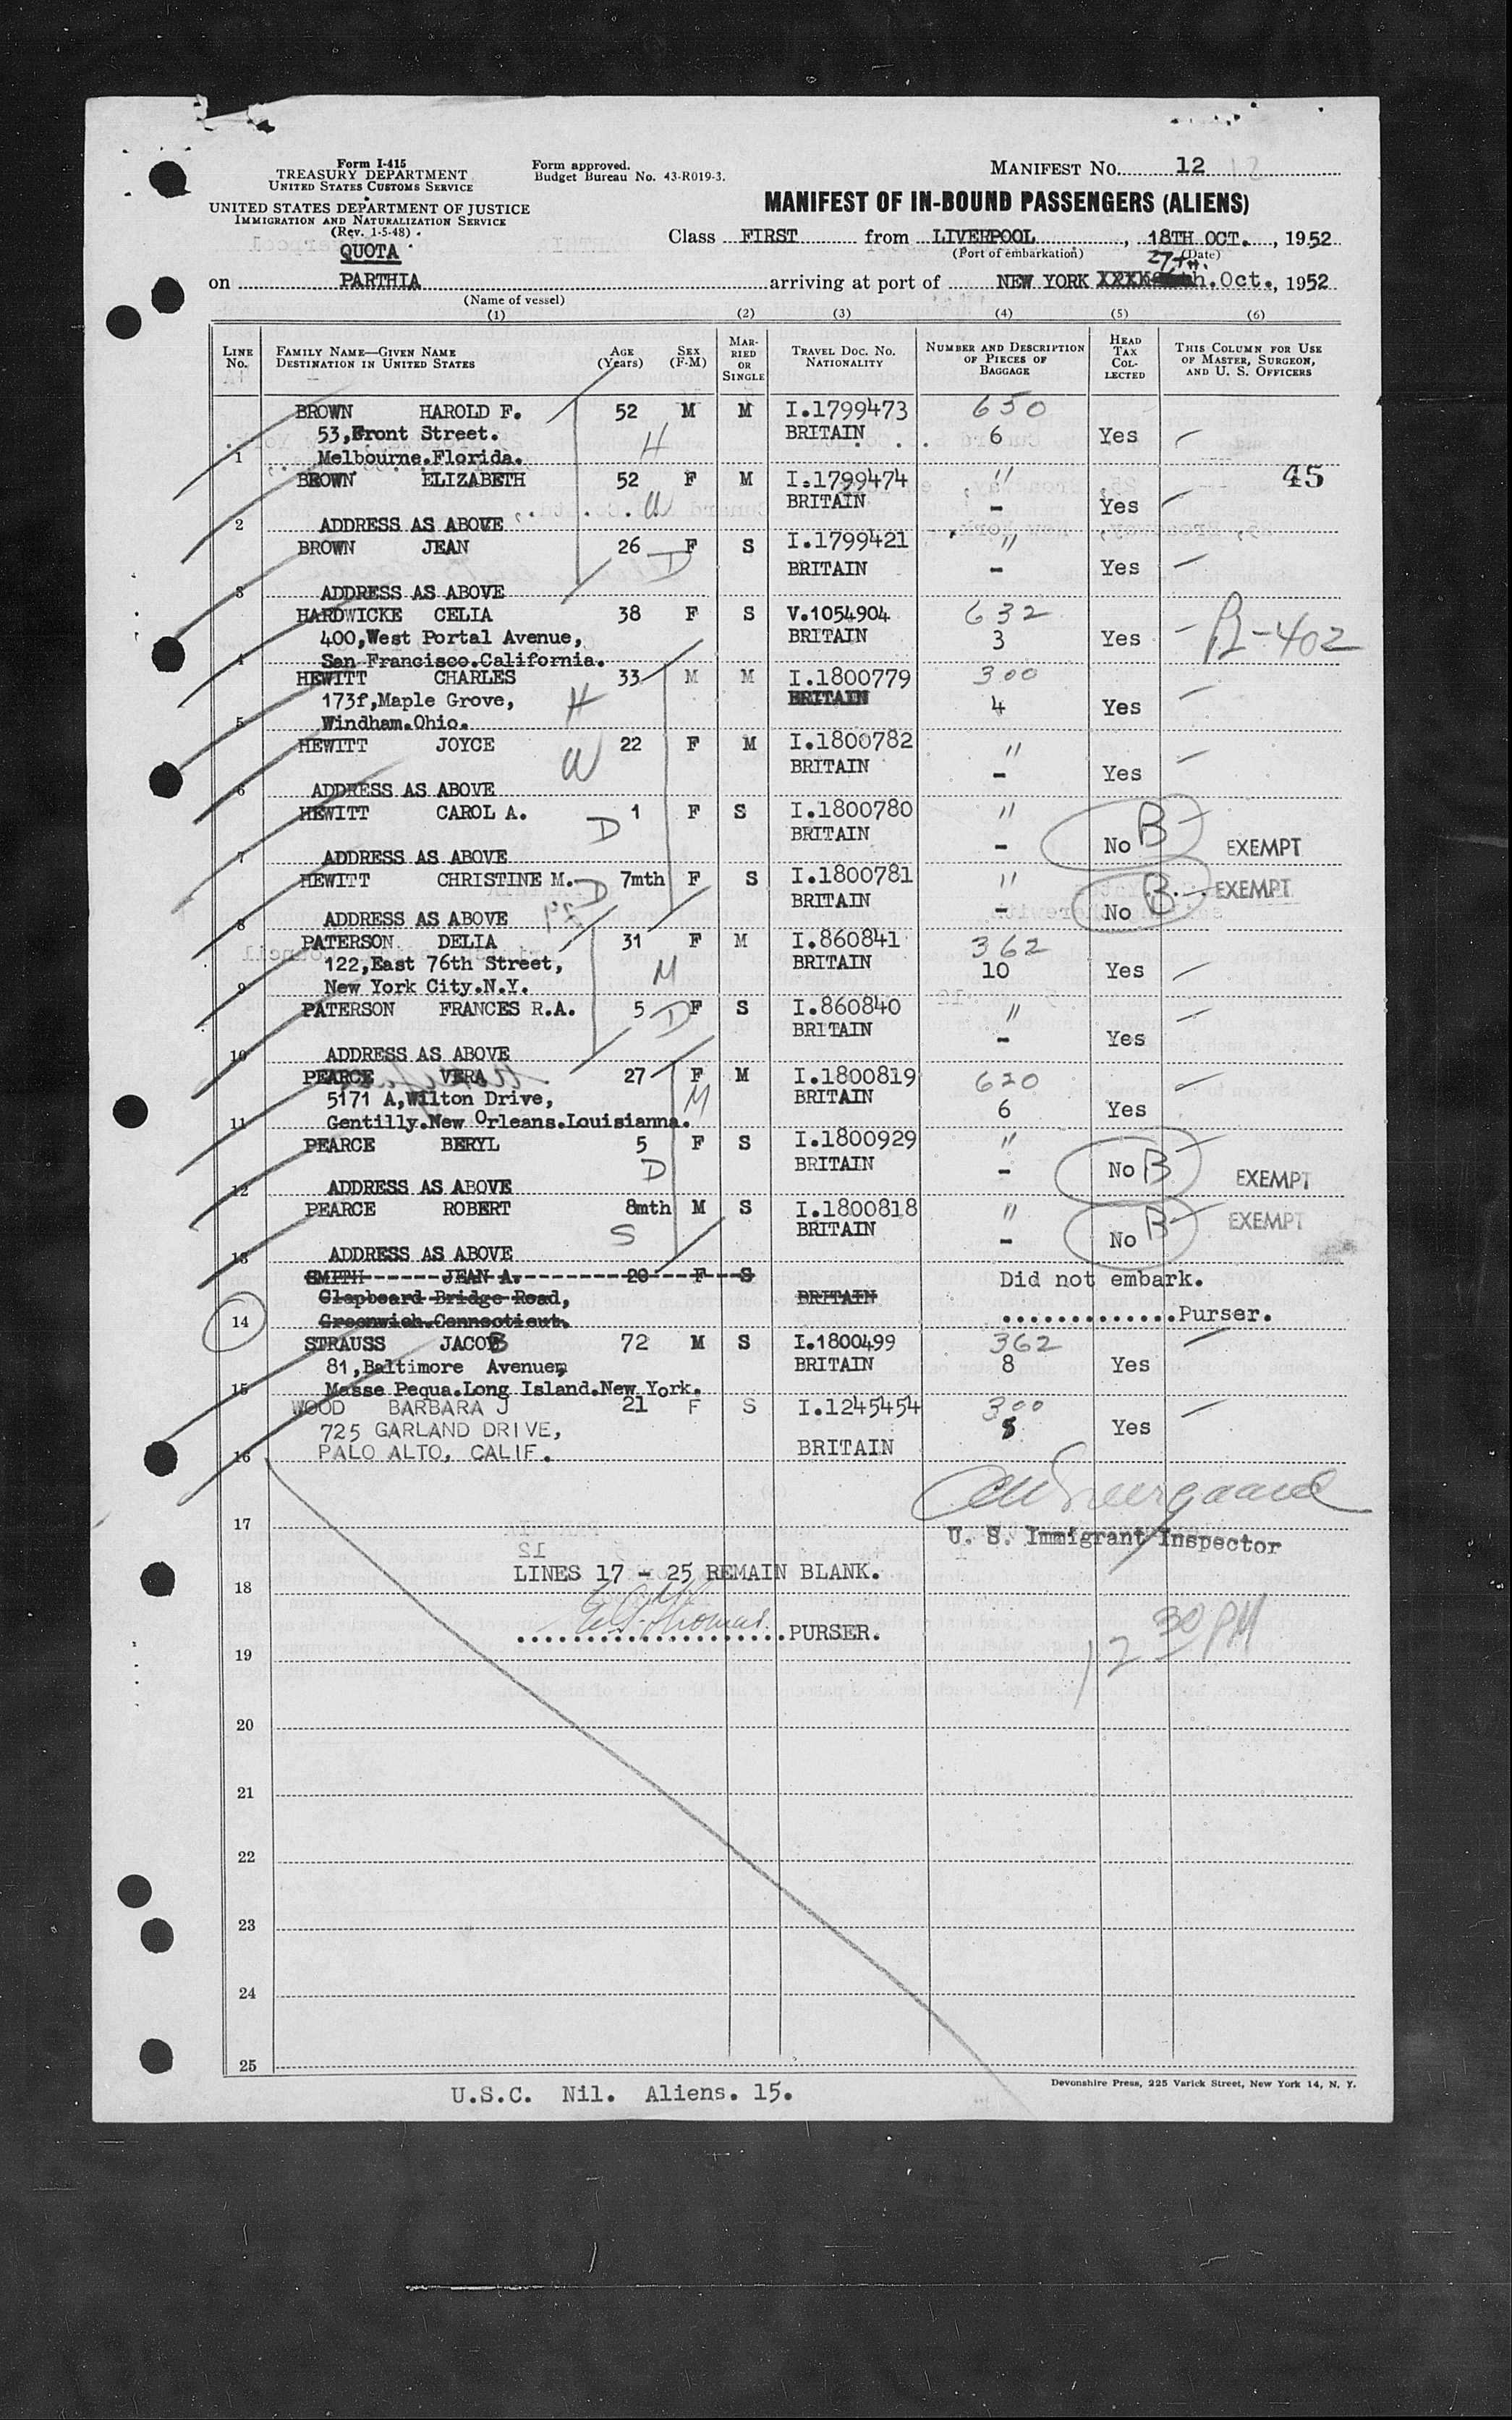 Form I-415
TREASURY DEPARTMENT
UNITED STATES CUSTOMS SERVICE
UNITED STATES DEPARTMENT OF JUSTICE
IMMIGRATION AND NATURALIZATION SERVICE
(Rev. 1-5-48)
QUOTA
Form approved.
Budget Bureau No. 43-R019-3.
MANIFEST NO. 12 12
MANIFEST OF IN-BOUND PASSENGERS (ALIENS)
Class FIRST from LIVERPOOL, 18TH OCT., 1952
(Port of embarkation) (Date)
27TH.
on PARTHIA arriving at port of NEW YORK Oct., 1952
(Name of vessel)
(1) (2) (3) (4) (5) (6)
LINE NO. FAMILY NAME—GIVEN NAME DESTINATION IN UNITED STATES AGE (Years) SEX (F-M) MARRIED OR SINGLE TRAVEL DOC. NO. NATIONALITY NUMBER AND DESCRIPTION OF PIECES OF BAGGAGE HEAD TAX COLLECTED THIS COLUMN FOR USE OF MASTER, SURGEON, AND U. S. OFFICERS
BROWN HAROLD F. 52 M M I.1799473 650
53,Front Street. H BRITAIN 6 Yes
1 Melbourne.Florida.
BROWN ELIZABETH 52 F M I.1799474 " 45
W BRITAIN - Yes
2 ADDRESS AS ABOVE
BROWN JEAN 26 F S I.1799421 "
D BRITAIN - Yes
3 ADDRESS AS ABOVE
HARDWICKE CELIA 38 F S V.1054904 632
400,West Portal Avenue, BRITAIN 3 Yes -402
4 San Francisco.California.
HEWITT CHARLES 33 M M I.1800779 300
173f,Maple Grove, H BRITAIN 4 Yes
5 Windham.Ohio.
HEWITT JOYCE 22 F M I.1800782 "
W BRITAIN - Yes
6 ADDRESS AS ABOVE
HEWITT CAROL A. 1 F S I.1800780 "
D BRITAIN - No B EXEMPT
7 ADDRESS AS ABOVE
HEWITT CHRISTINE M. 7mth F S I.1800781 "
D BRITAIN - No B EXEMPT
8 ADDRESS AS ABOVE
PATERSON DELIA 31 F M I.860841 362
122,East 76th Street, M BRITAIN 10 Yes
9 New York City.N.Y.
PATERSON FRANCES R.A. 5 F S I.860840 "
D BRITAIN - Yes
10 ADDRESS AS ABOVE
PEARCE VERA 27 F M I.1800819 620
5171 A,Wilton Drive, M BRITAIN 6 Yes
11 Gentilly.New Orleans.Louisianna.
PEARCE BERYL 5 F S I.1800929 "
D BRITAIN - No B EXEMPT
12 ADDRESS AS ABOVE
PEARCE ROBERT 8mth M S I.1800818 "
S BRITAIN - No B EXEMPT
13 ADDRESS AS ABOVE
SMITH JEAN A. 20 F S Did not embark.
Clapboard Bridge Road, BRITAIN
14 Greenwich.Connecticut. ..............Purser.
STRAUSS JACOB 72 M S I.1800499 362
81,Baltimore Avenue, BRITAIN 8 Yes
15 Masse Pequa.Long Island.New York.
WOOD BARBARA J 21 F S I.1245454 300
725 GARLAND DRIVE, BRITAIN Yes
16 PALO ALTO, CALIF.
17
U. S. Immigrant Inspector
LINES 17 - 25 REMAIN BLANK.
18
Thomas
....................PURSER.
12 30 PM
19
20
21
22
23
24
25
Devonshire Press, 225 Varick Street, New York 14, N. Y.
U.S.C. Nil. Aliens. 15.